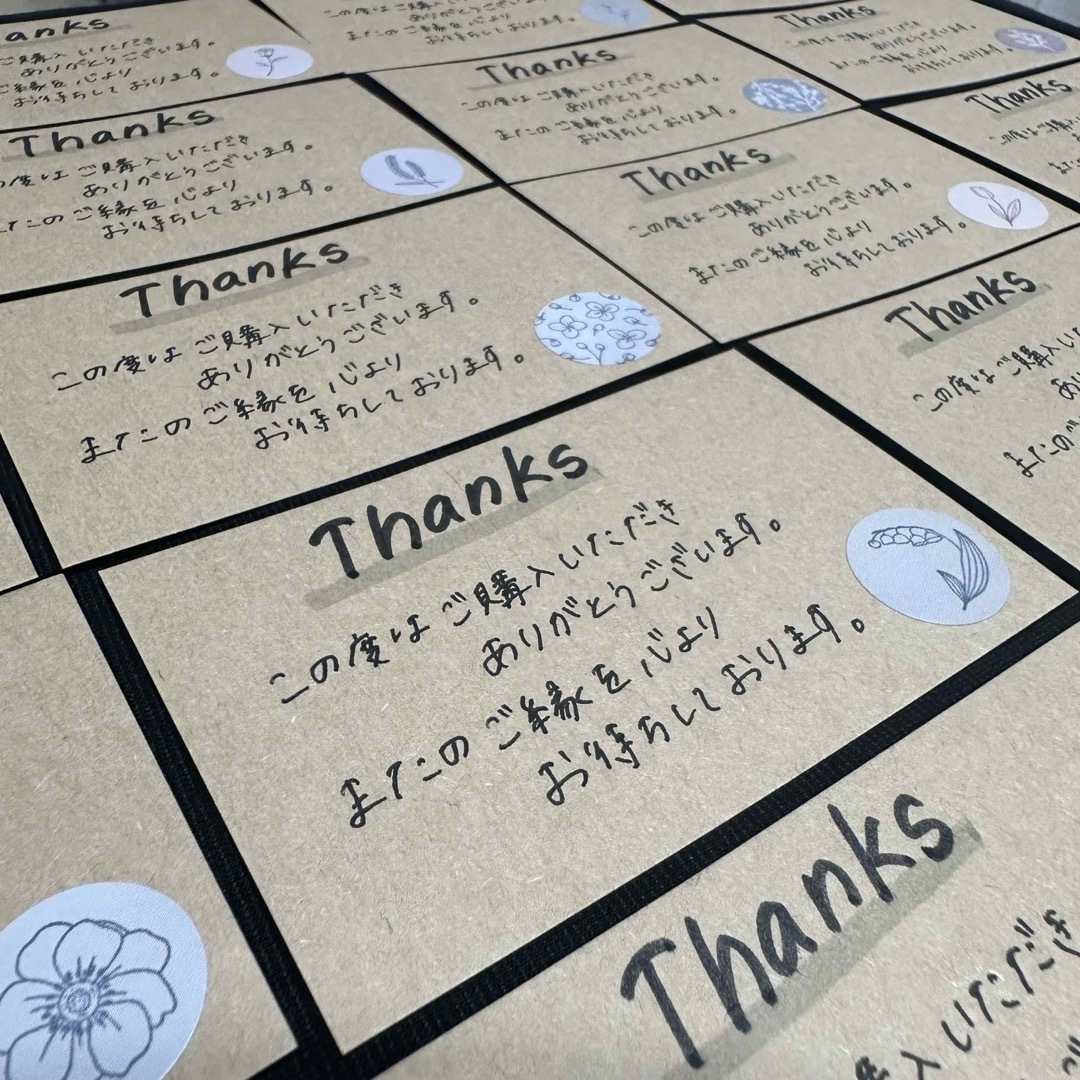 anks
この度は ご購入いただき
ありがとうございます。
またこのご縁を心より
お待ちしております。
この度は ご購入いただき
ありがとうございます。
またこのご縁を心より
お待ちしております。
Thanks
この度は ご購入いただき
ありがとうございます。
またこのご縁を心より
お待ちしております。
Thanks
この度は ご購入いただき
ありがとうございます。
またこのご縁を心より
お待ちしております。
Thanks
の度は ご購入いただき
ありがとうございます。
たこのご縁を心より
お待ちしております。
Thanks
この度は ご購入いただき
ありがとうございます。
またこのご縁を心より
お待ちしております。
Thanks
この度は ご購入
あり
またの
Thanks
この度は ご購入いただき
ありがとうございます。
またこのご縁を心より
お待ちしております。
Thanks
この度は ご購入いた
あり
またのご
Thanks
この度は ご購入いただき
ありがとうございます。
またこのご縁を心より
お待ちしております。
Thanks
入いただき